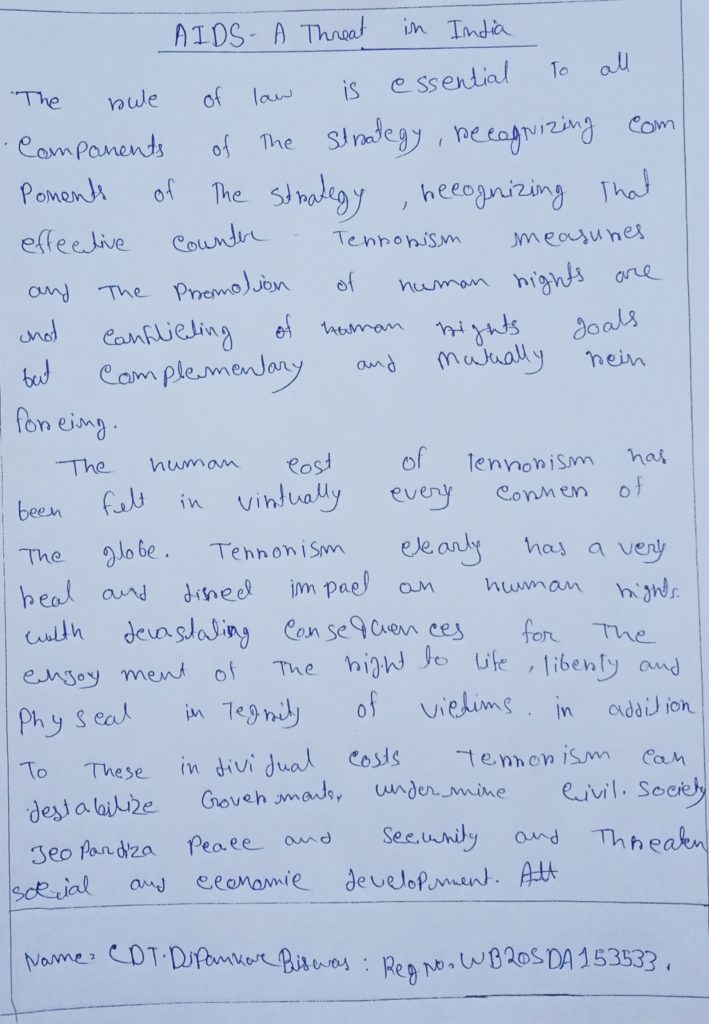 AIDS - A Threat in India
The rule of law is essential To all
Components of The strategy, recognizing com
Ponents of The strategy, recognizing That
effective counter Terrorism measures
and The Promotion of human rights are
not conflicting of human rights goals
but complementary and mutually rein
forceing.
The human cost of Terrorism has
been felt in virtually every corner of
The globe. Terrorism clearly has a very
real and direct impact on human rights.
with devastating Consequences for The
enjoy ment of The right to life, liberty and
Phy seal in Tegrity of victims. in addition
To These in dividual costs Terrorism can
destabilize Governments, undermine Civil. Society
Jeo Pardiza Peace and Security and Threaten
social and economic development.
Name: CDT. Dipankar Biswas : Reg No. WB20SDA153533.